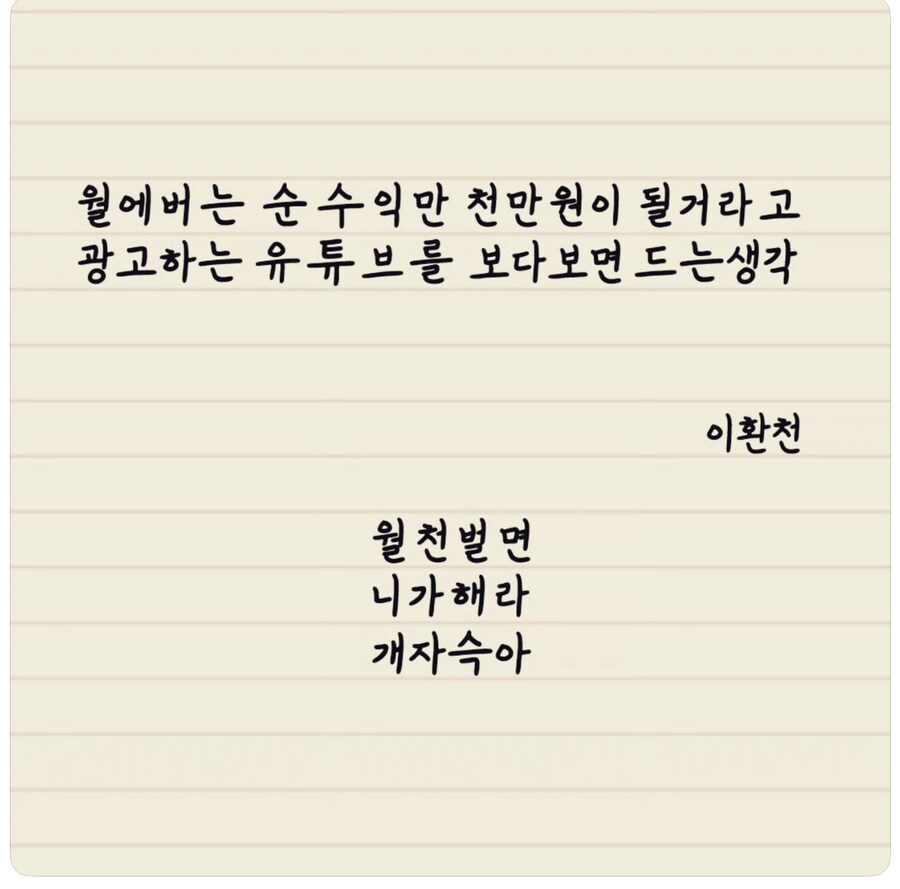 월에버는 순수익만 천만원이 될거라고
광고하는 유튜브를 보다보면 드는생각
이환천
월천벌면
니가해라
개자슥아